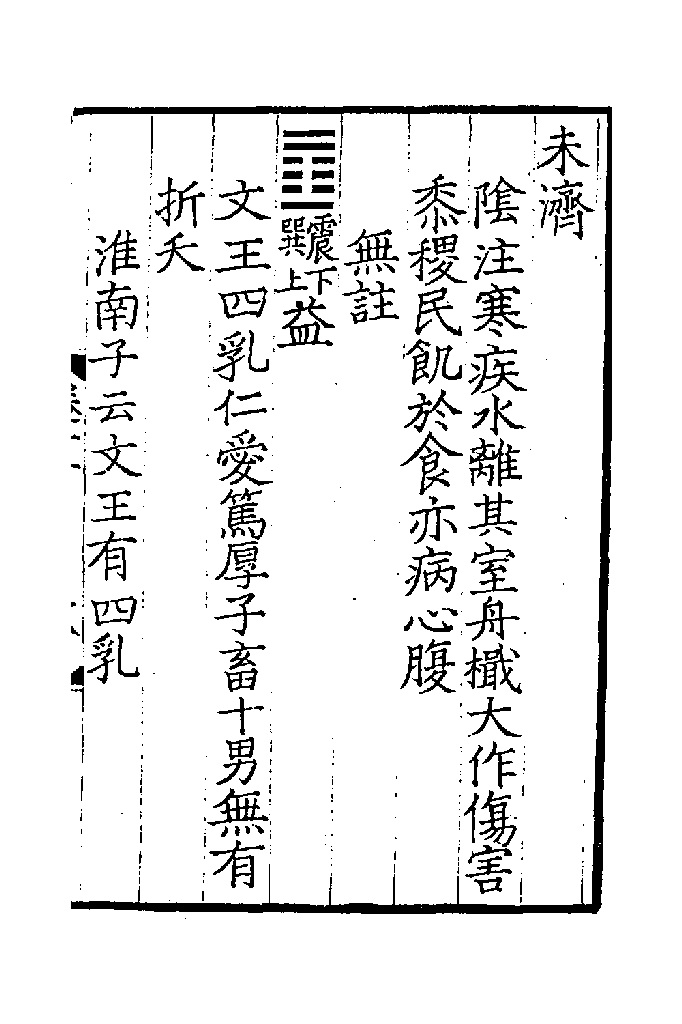 未濟
陰注寒疾水離其室舟檝大作傷害
黍稷民飢於食亦病心腹
無註
䷩震下巽上益
文王四乳仁愛篤厚子畜十男無有
折夭
淮南子云文王有四乳